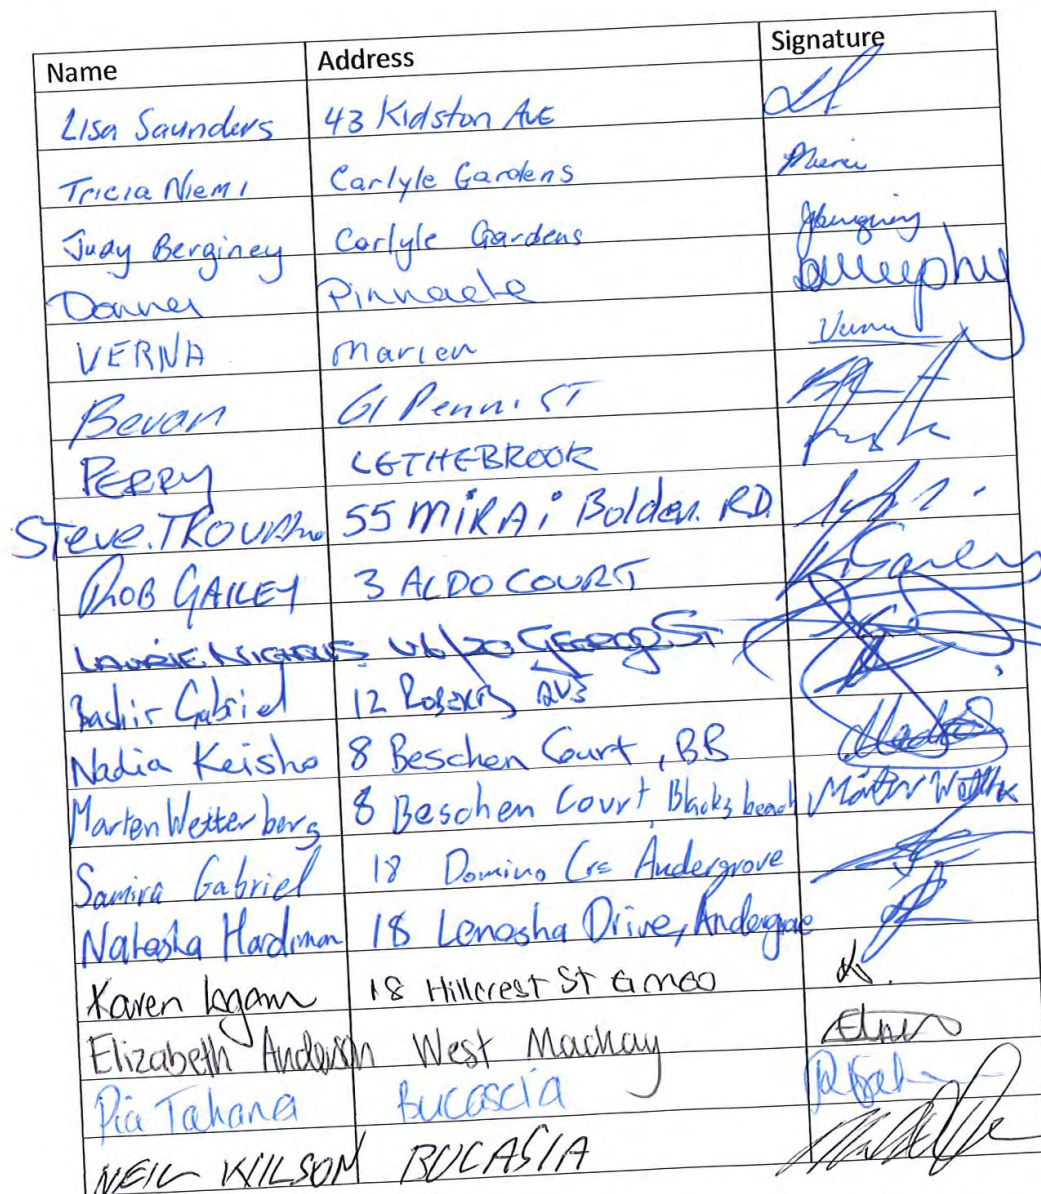 Name Address Signature
Lisa Saunders 43 Kidston AVE
Tricia Niemi Carlyle Gardens
Judy Berginey Carlyle Gardens
Pinnacle
VERNA Marian
Bevan 61 Penni ST
PERRY LETHEBROOK
Steve. 55 MiRAi Bolden. RD.
ROB GAILEY 3 ALDO COURT
LAURIE NICHOLLS U6/20 George St
Bashir Gabriel 12
Nadia Keisho 8 Beschen Court, BB
Marten Wetterberg 8 Beschen Court Blacks beach Marten
Samira Gabriel 18 Domino Crs Andergrove
Natasha Hardiman 18 Lenosha Drive, Andergrove
Karen 18 Hillcrest St Eimeo
Elizabeth Anderson West Mackay
Pia Tahana Bucascia
NEIL WILSON BUCASIA